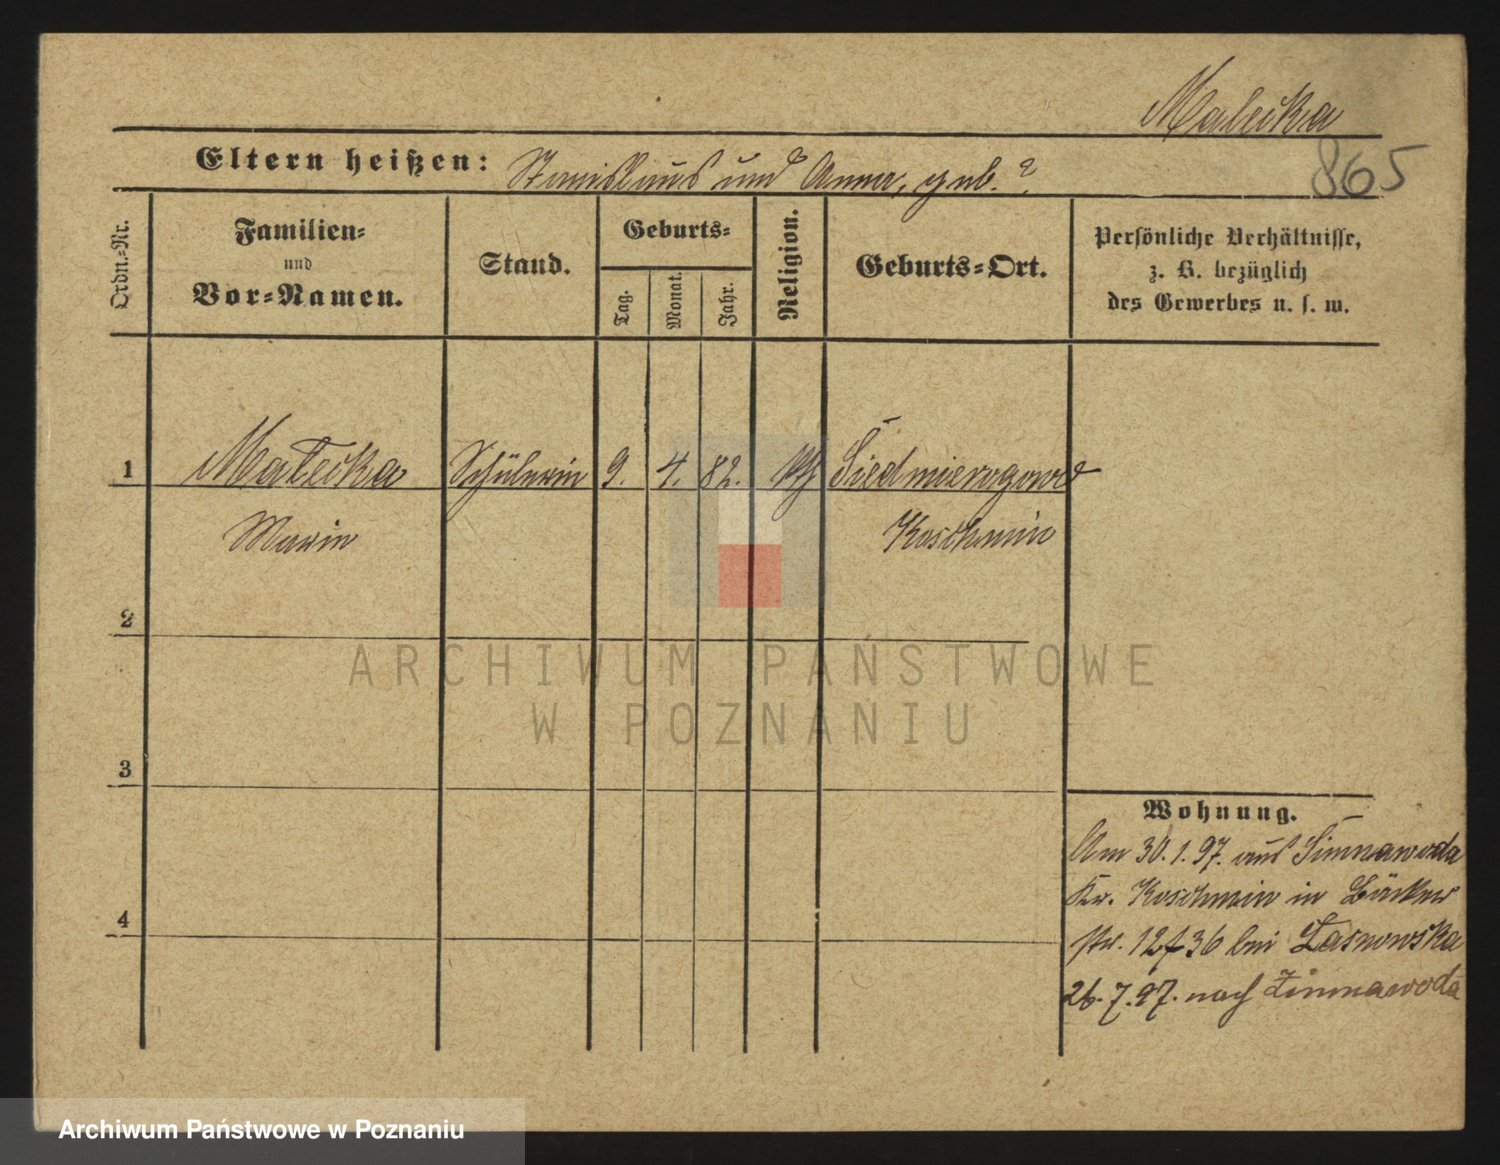 Maleika
Eltern heißen: Stanislaus und Anna, geb. ?
865
Ordn.-Nr.
Familien-
und
Vor-Namen.
Stand.
Geburts-
Tag.
Monat.
Jahr.
Religion.
Geburts-Ort.
Persönliche Verhältnisse,
z. B. bezüglich
des Gewerbes u. s. w.
1 Schülerin 9. 4. 82. kth Siedmierogowo
Marie Koschmin
2
3
4
ARCHIWUM PAŃSTWOWE
W POZNANIU
Wohnung.
Am 30.1.97. aus Simnawoda
Kr. Koschmin in Bäcker
str. 12 36 bei
26.7.97. nach Zimnawoda
Archiwum Państwowe w Poznaniu